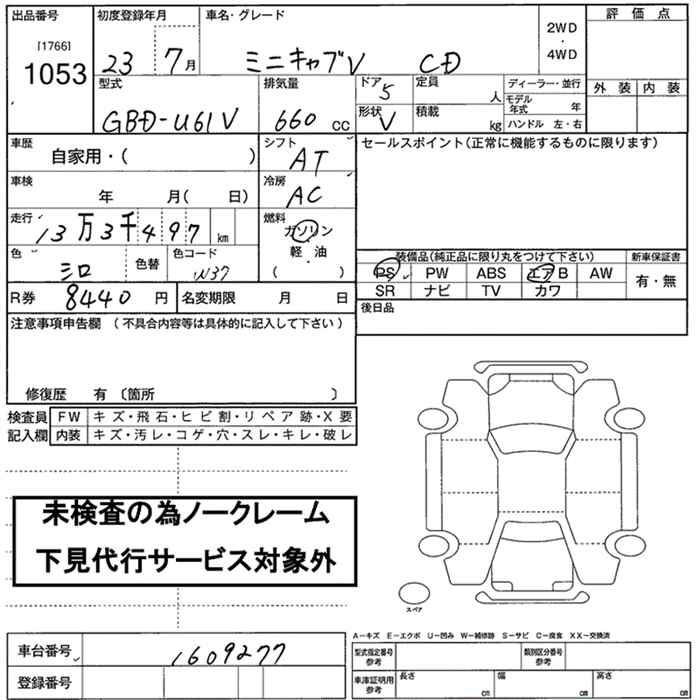 出品番号 初度登録年月 車名・グレード 2WD・4WD 評価点
[1766] 1053 23 7月 ミニキャブV CD 外装 内装
型式 排気量 ドア 5 定員 人 ディーラー・並行
GBD-U61V 660 cc 形状 V 積載 kg モデル年式 年
ハンドル 左・右
車歴 自家用・( ) シフト AT セールスポイント(正常に機能するものに限ります)
車検 年 月( 日) 冷房 AC
走行 13万3千497 km 燃料 ガソリン・軽油 ( )
色 シロ 色替 色コード W37 装備品(純正品に限り丸をつけて下さい) 新車保証書
PS PW ABS エアB AW 有・無
R券 8440円 名変期限 月 日 SR ナビ TV カワ
後日品
注意事項申告欄 (不具合内容等は具体的に記入して下さい)
修復歴 有 〔箇所 〕
検査員 FW キズ・飛石・ヒビ割・リペア跡・X要
記入欄 内装 キズ・汚レ・コゲ・穴・スレ・キレ・破レ
未検査の為ノークレーム
下見代行サービス対象外
スペア
A−キズ E−エクボ U−凹み W−補修跡 S−サビ C−腐食 XX−交換済
車台番号 1609277 型式指定番号 参考 類別区分番号 参考
登録番号 車庫証明用 参考 長さ cm 幅 cm 高さ cm